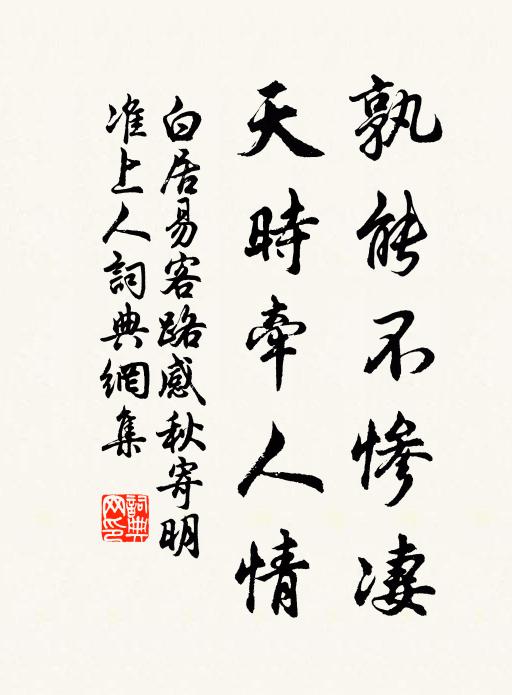 孰能不慘凄
天時牽人情
白居易客路感秋寄明
准上人詞典網集
詞典网印